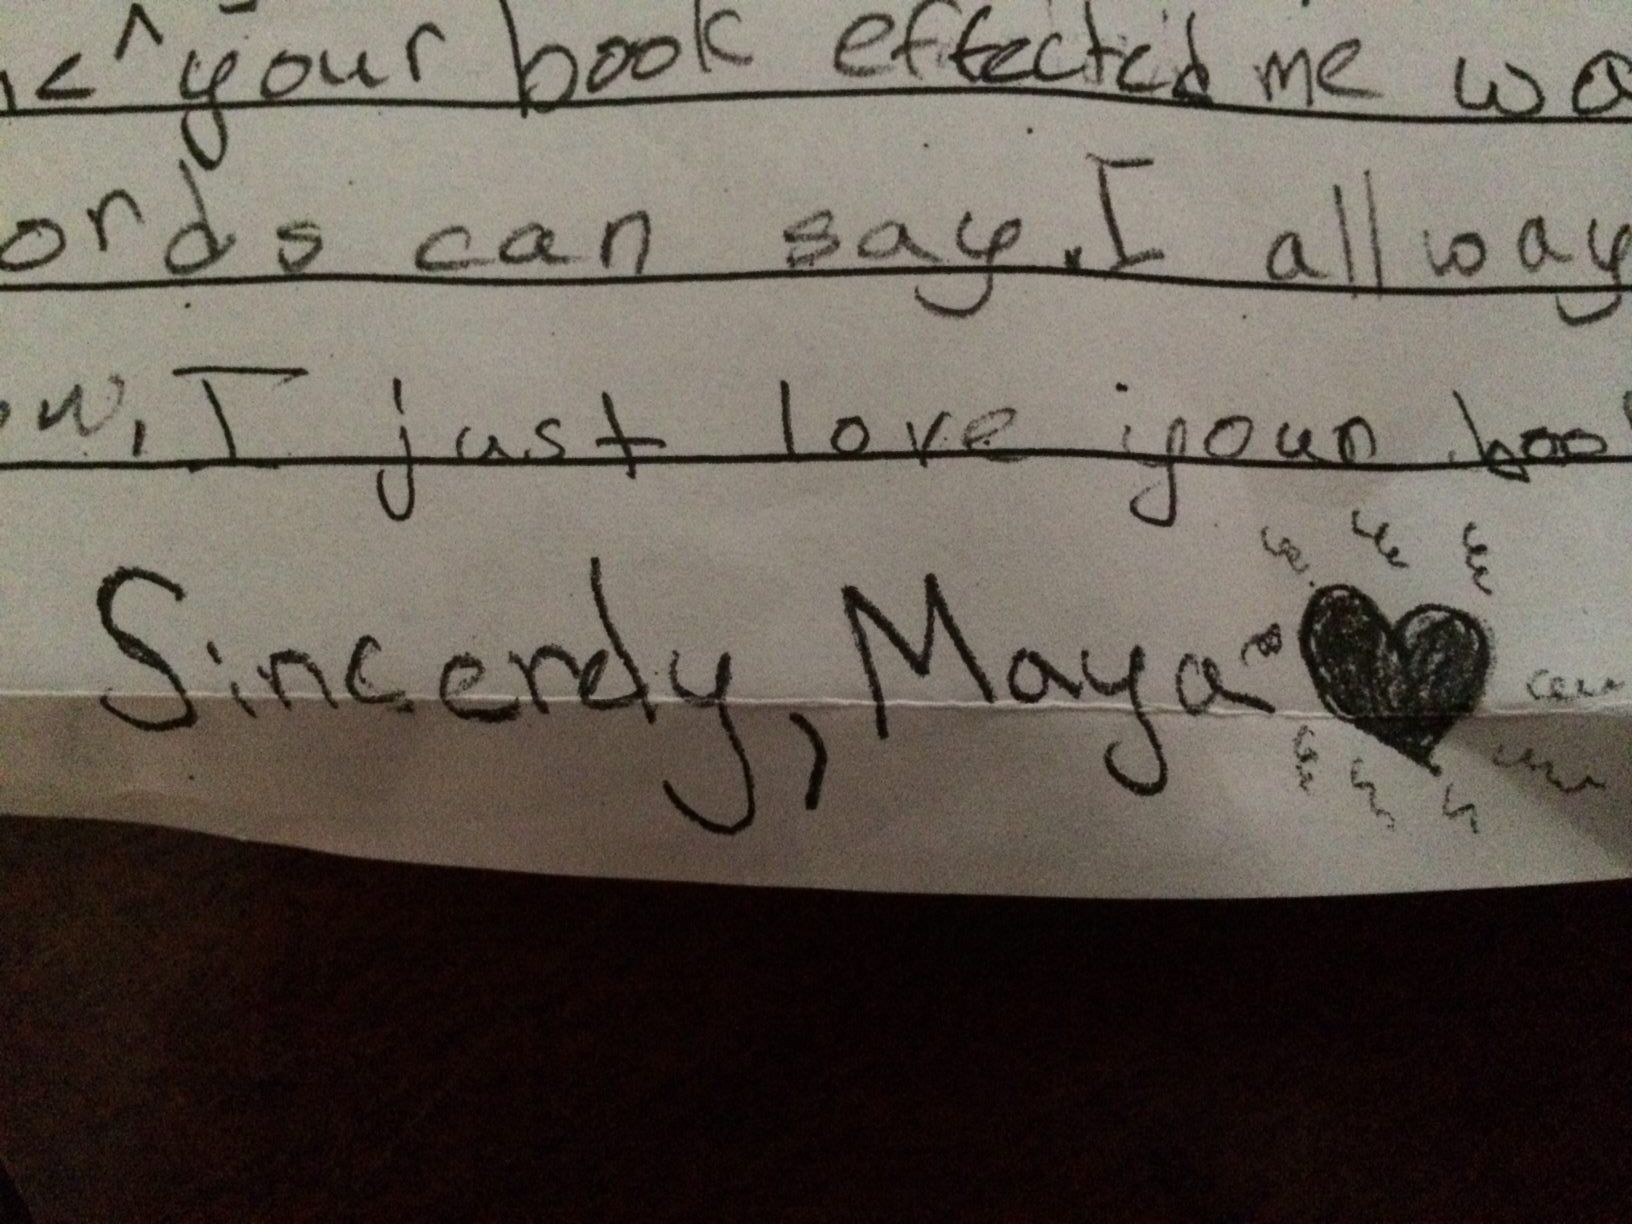 your book effected me
ords can say. I allway
ow, I just love your boo
Sincerely, Maya